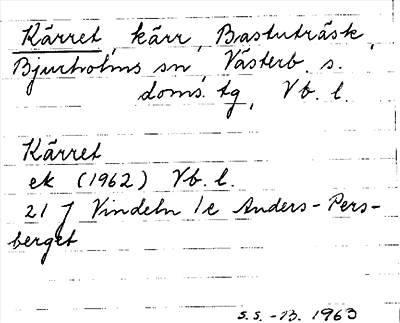 Kärret, kärr, Bastuträsk,
Bjurholms sn, Västerb. s.
doms. tg, Vb. l.
Kärret
ek (1962) Vb. l.
21 J Vindeln 1c Anders-Pers-
berget
S.S. -13. 1963